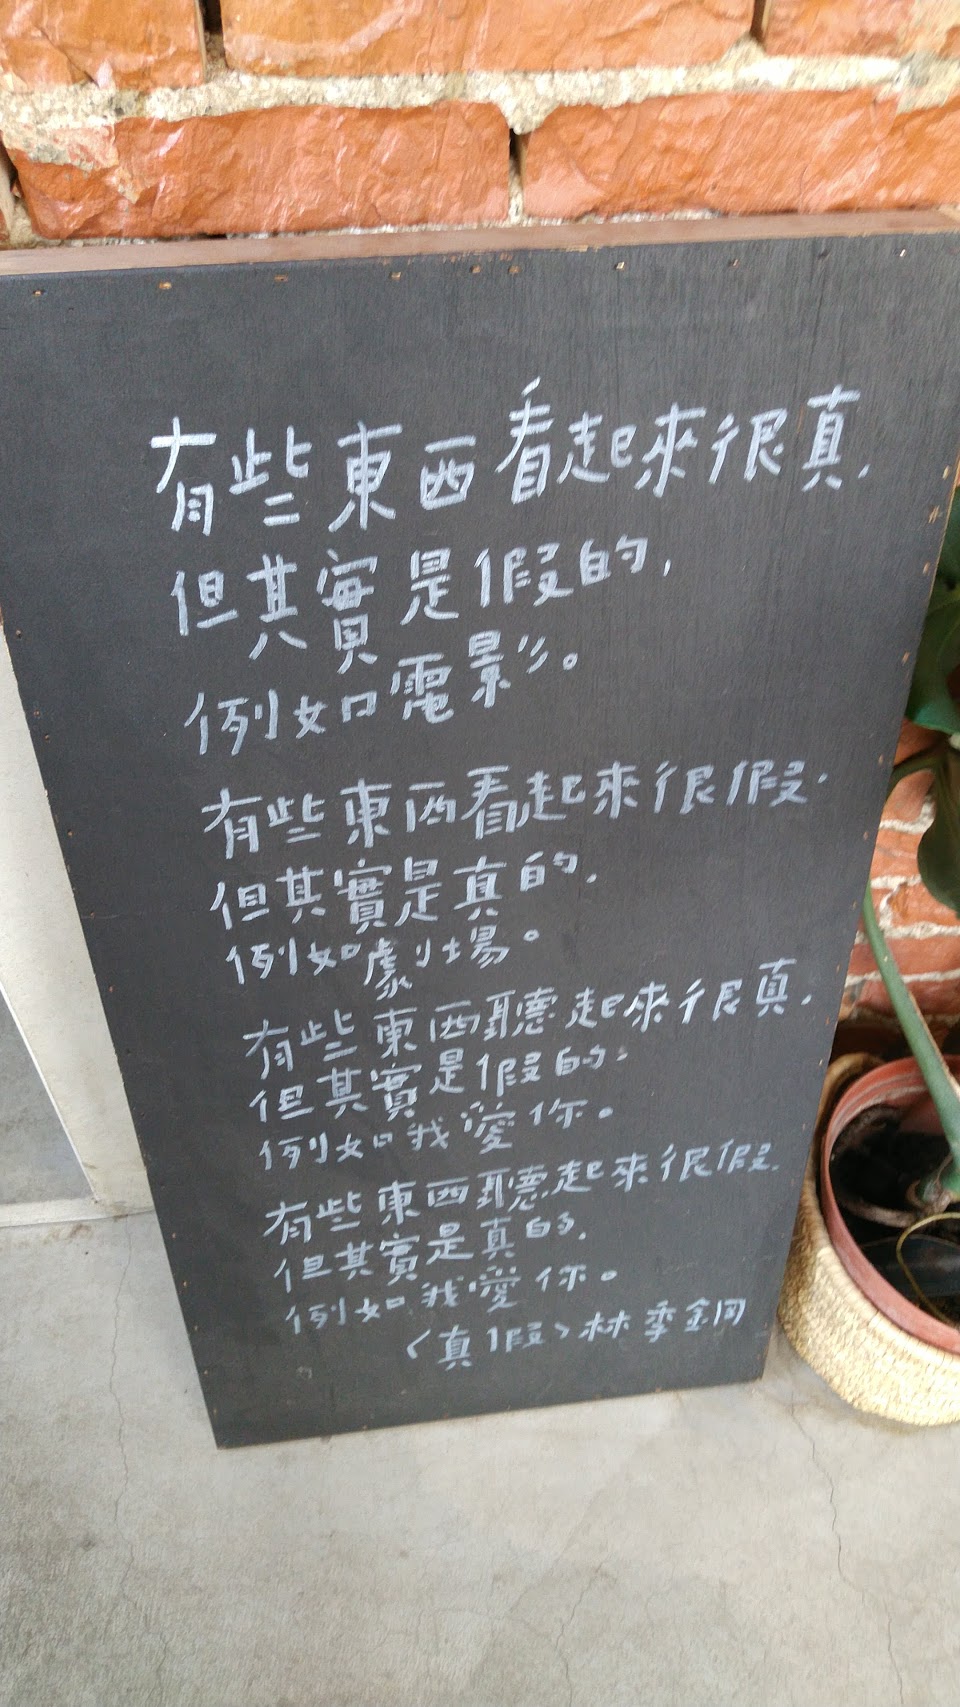 有些東西看起來很真，
但其實是假的，
例如電影。
有些東西看起來很假，
但其實是真的，
例如劇場。
有些東西聽起來很真，
但其實是假的，
例如我愛你。
有些東西聽起來很假，
但其實是真的，
例如我愛你。
〈真假〉林季鋼